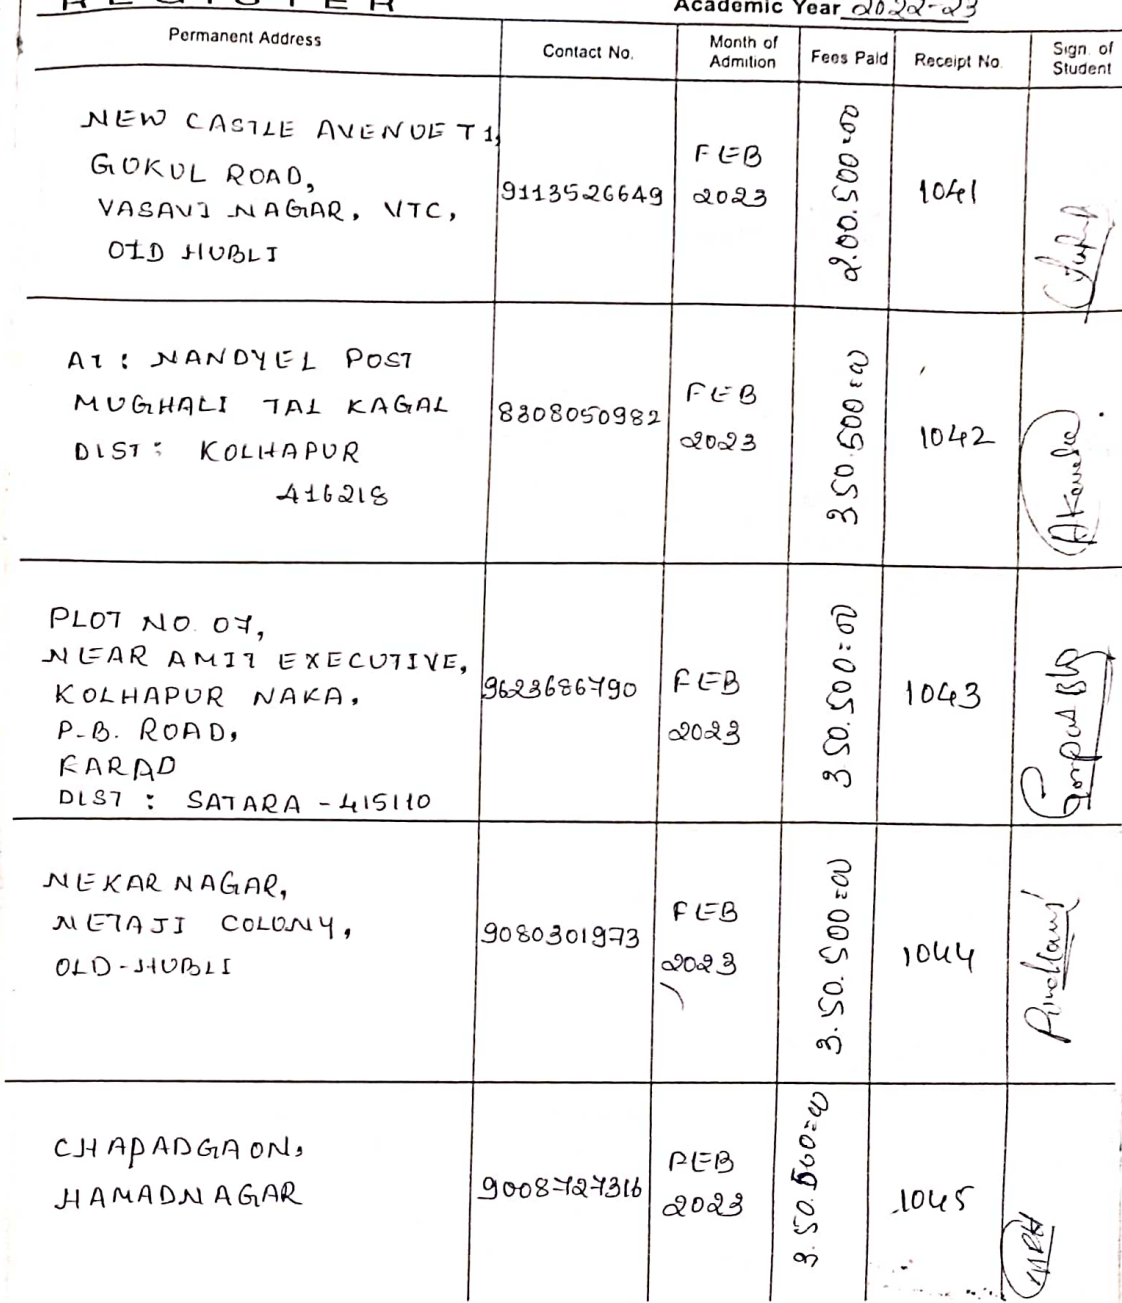 REGISTER
Academic Year 2022-23
Permanent Address
Contact No.
Month of Admition
Fees Paid
Receipt No.
Sign. of Student
NEW CASTLE AVENUE T1,
GOKUL ROAD,
VASAVI NAGAR, VTC,
OLD HUBLI
9113526649
FEB
2023
2.00.500=00
1041
AT : NANDYEL POST
MUGHALI TAL KAGAL
DIST : KOLHAPUR
416218
8808050982
FEB
2023
3 50.500=00
1042
PLOT NO. 07,
NEAR AMIT EXECUTIVE,
KOLHAPUR NAKA,
P.B. ROAD,
KARAD
DIST : SATARA - 415110
9623686790
FEB
2023
3 50.500=00
1043
NEKAR NAGAR,
NETAJI COLONY,
OLD-HUBLI
9080301973
FEB
2023
3.50.500=00
1044
CHAPADGAON,
HAMADNAGAR
9008727316
FEB
2023
3.50.500=00
1045